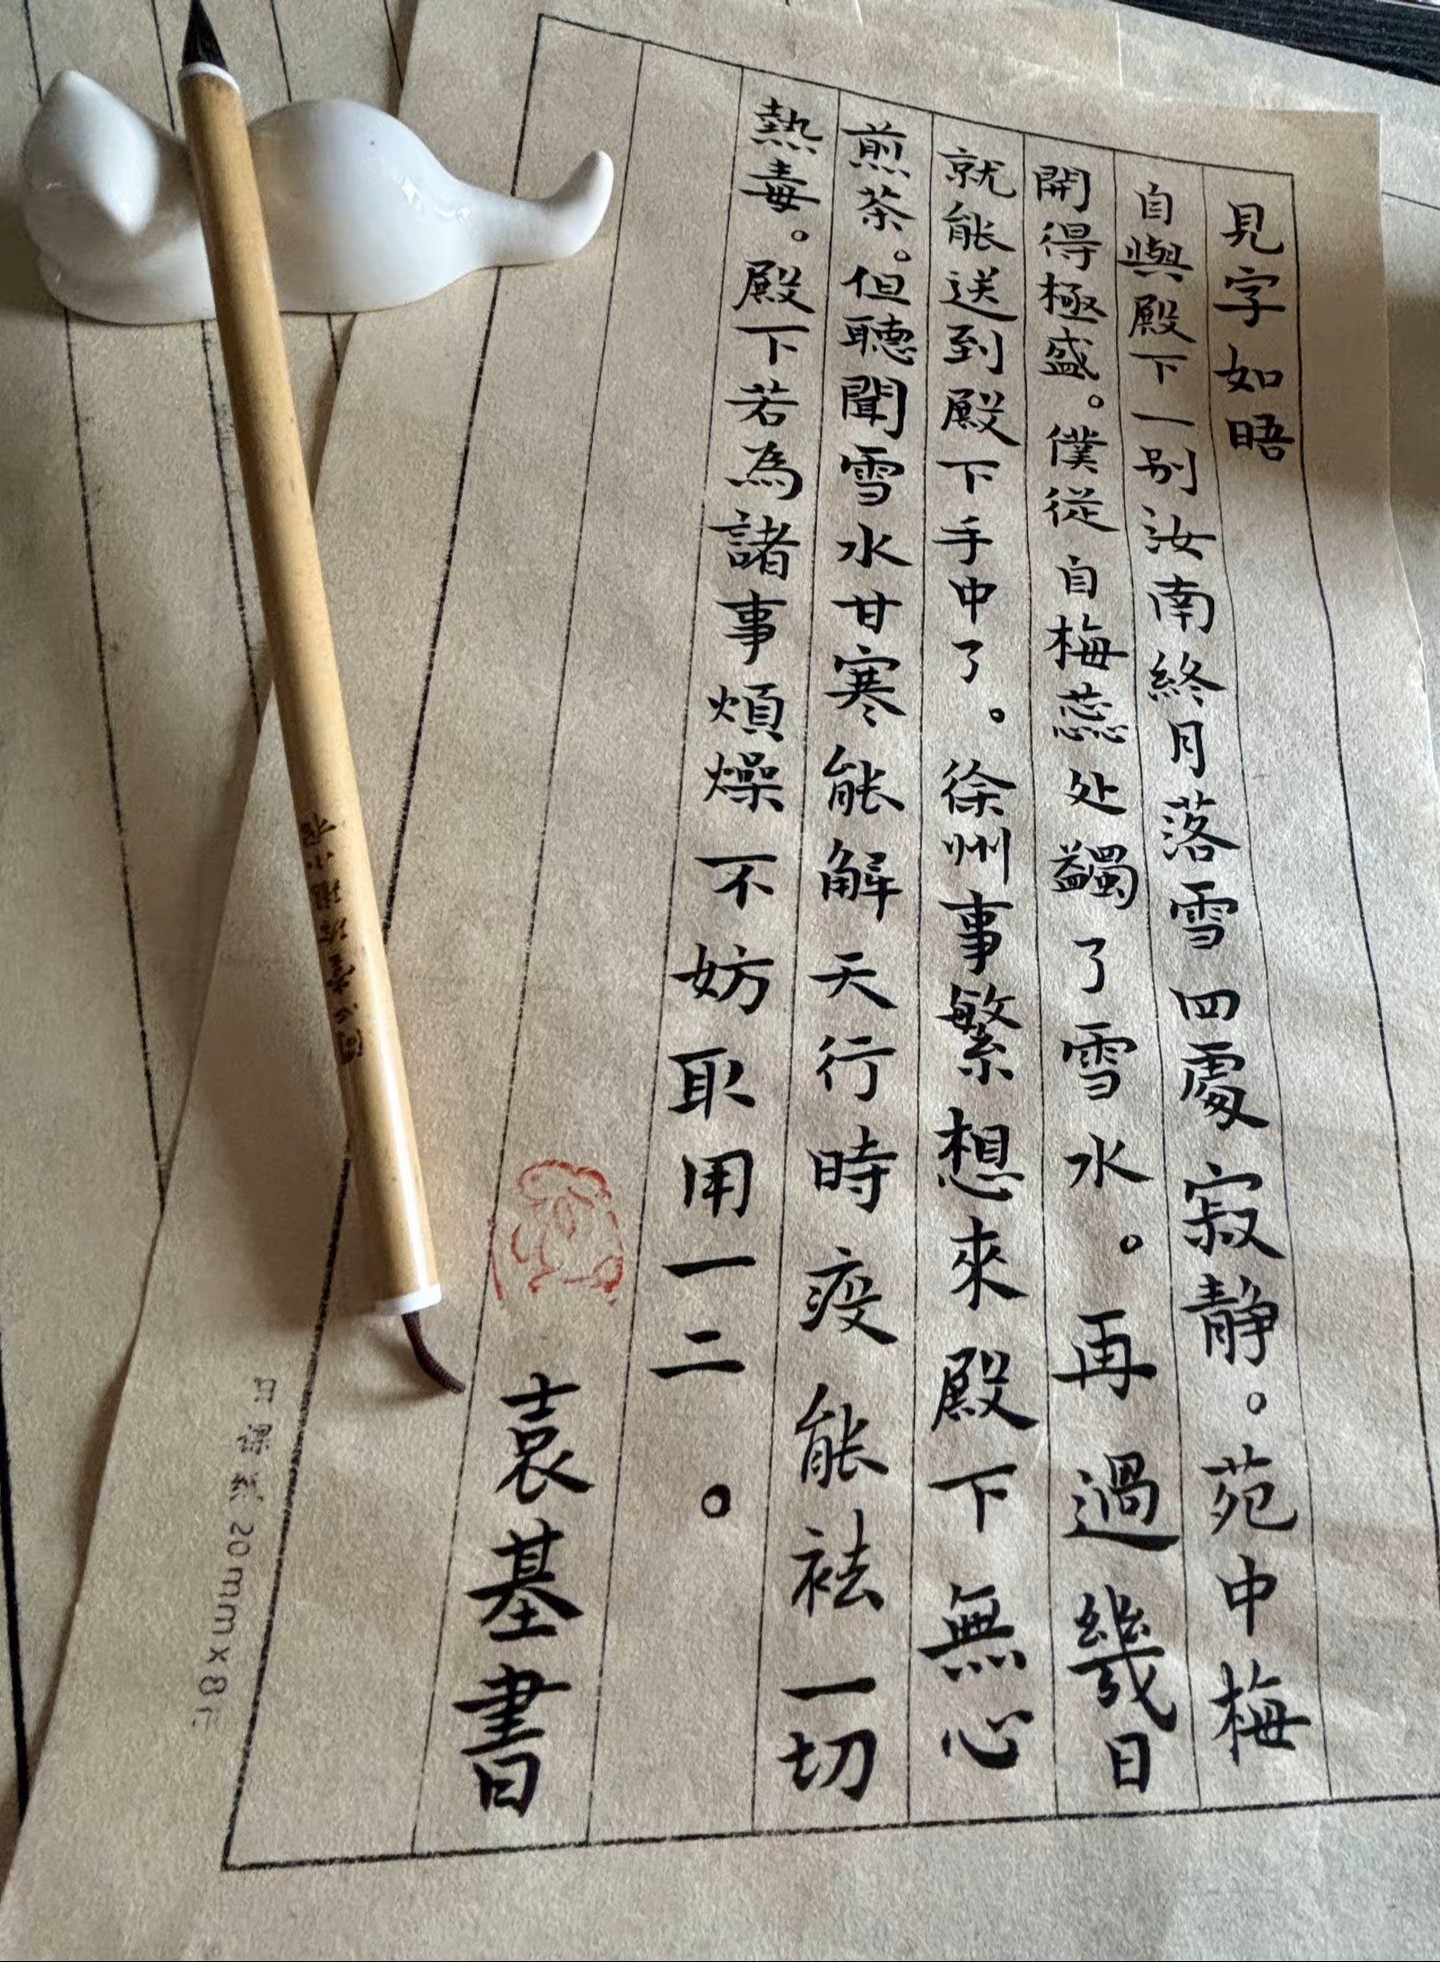 見字如晤
自與殿下一别汝南終月落雪四處寂静。苑中梅
開得極盛。僕從自梅蕊处蠲了雪水。再過幾日
就能送到殿下手中了。徐州事繁想來殿下無心
煎茶。但聽聞雪水甘寒能解天行時疫能祛一切
熱毒。殿下若為諸事煩燥不妨取用一二。
袁基書
日課纸 20mmx8